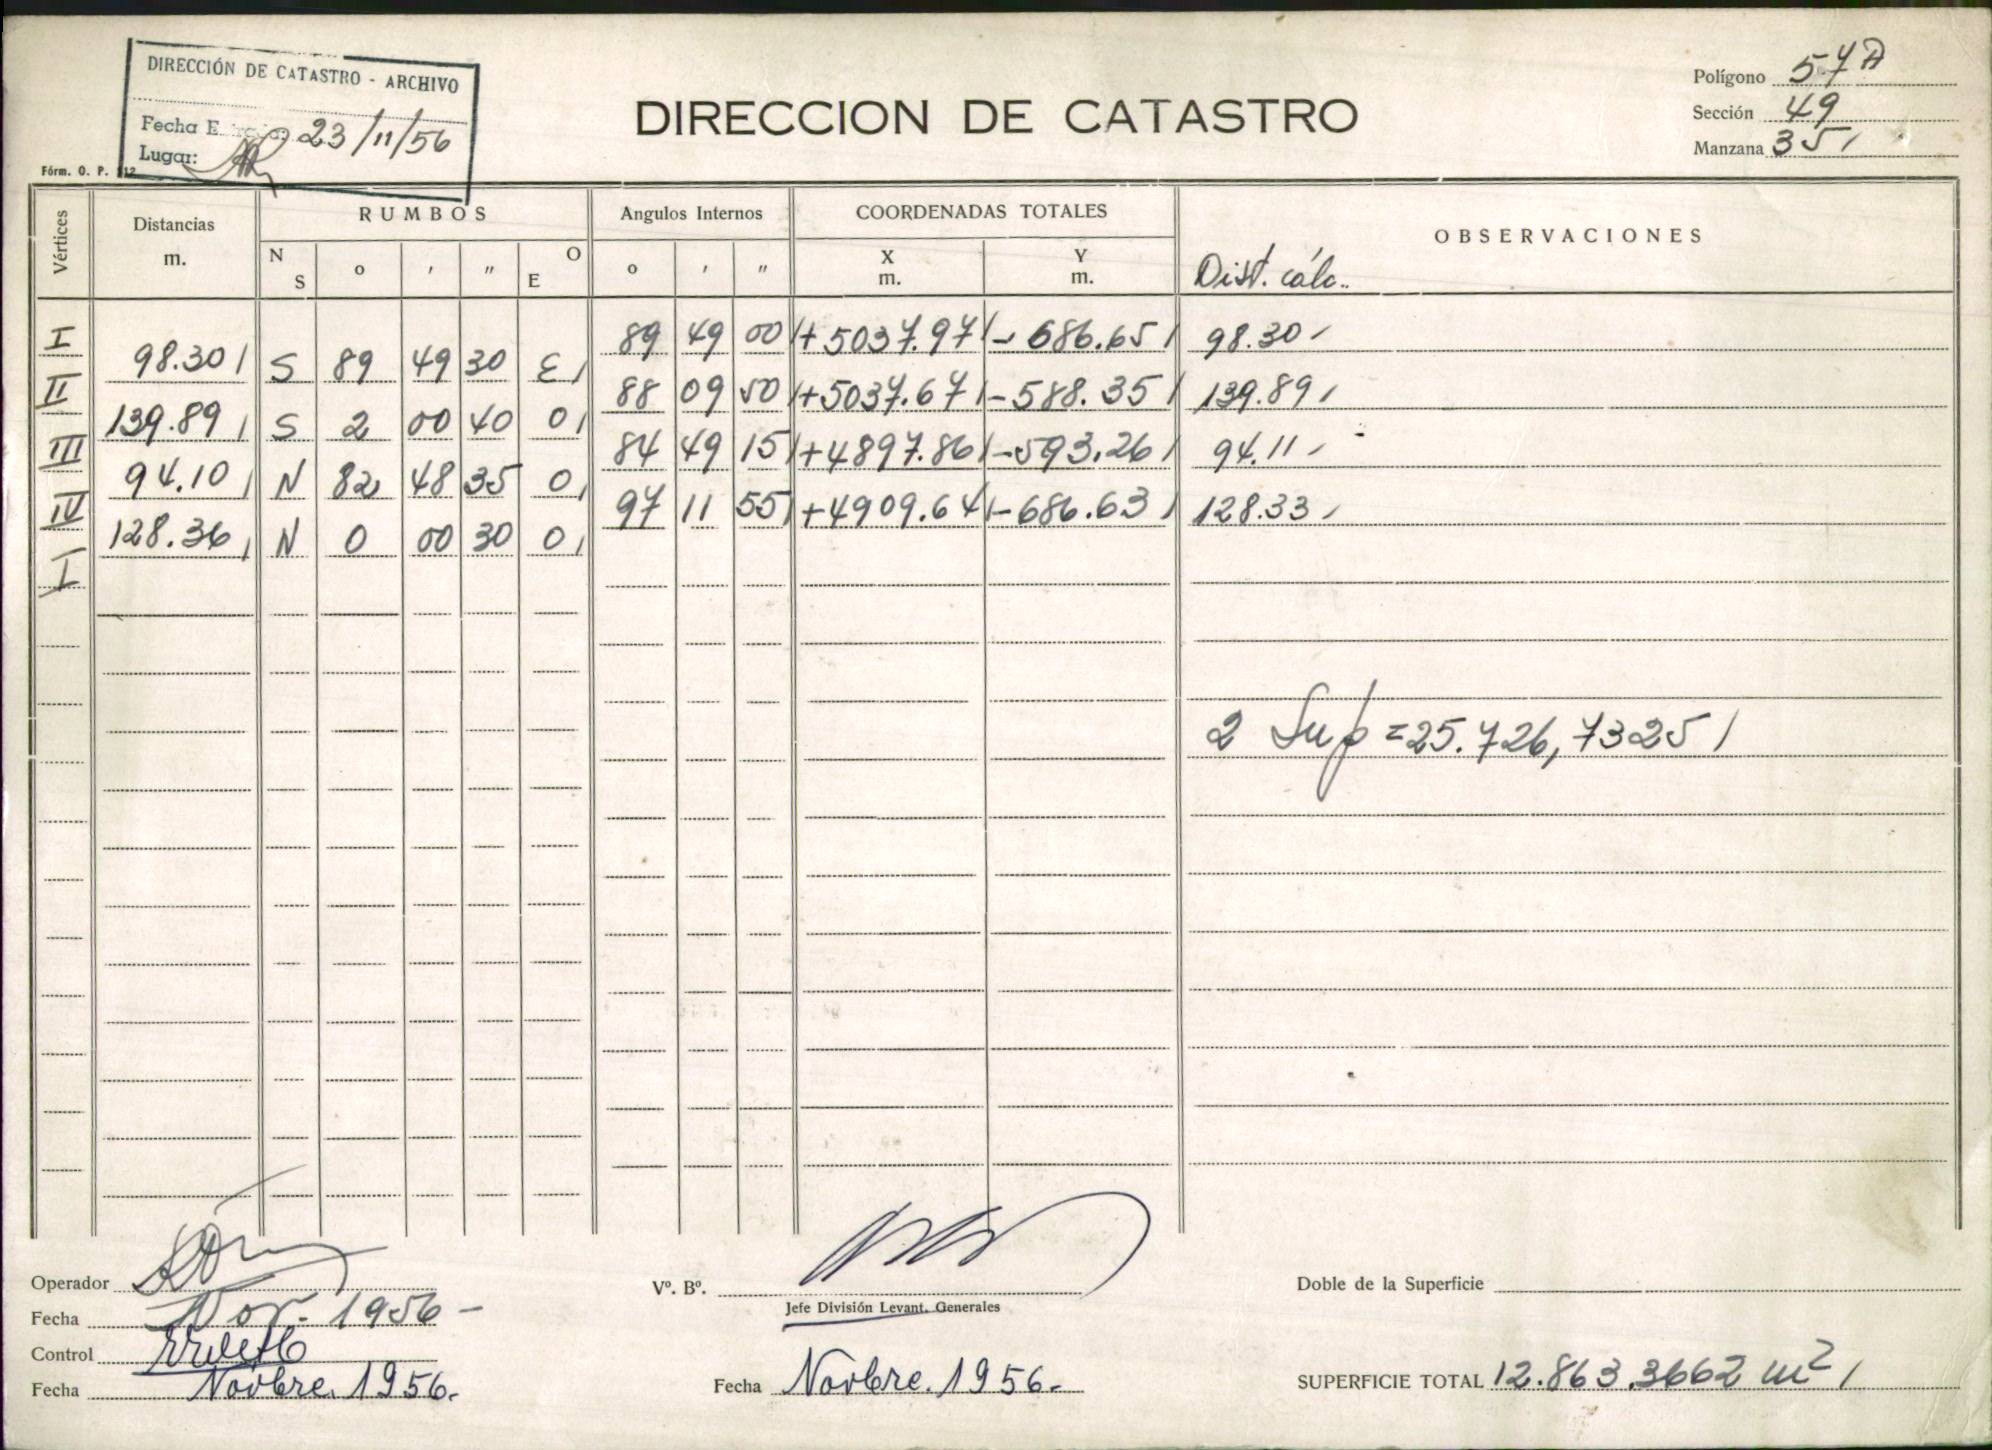 DIRECCIÓN DE CATASTRO - ARCHIVO
Fecha E 23/11/56
Lugar:
Fórm. O. P. 112
DIRECCION DE CATASTRO
Polígono 57A
Sección 49
Manzana 351
Vértices Distancias m. RUMBOS Angulos Internos COORDENADAS TOTALES OBSERVACIONES
N S o ' " O E o ' " X m. Y m. Dist. cálc.
I 89 49 00 +5037.97 -686.65 98.30
98.30 S 89 49 30 E
II 88 09 50 +5037.67 -588.35 139.89
139.89 S 2 00 40 O
III 84 49 15 +4897.86 -593.26 94.11
94.10 N 82 48 35 O
IV 97 11 55 +4909.64 -686.63 128.33
128.36 N 0 00 30 O
I
2 Sup = 25.726,7325
Operador
Fecha Nov. 1956 -
Control
Fecha Novbre. 1956.
Vº. Bº.
Jefe División Levant. Generales
Fecha Novbre. 1956.
Doble de la Superficie
SUPERFICIE TOTAL 12.863.3662 m²